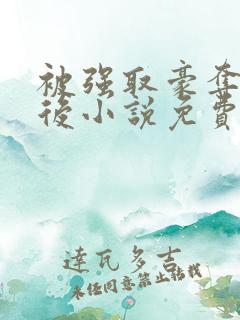 被强取豪夺
後小說免費
達瓦多吉
未经同意禁止转载